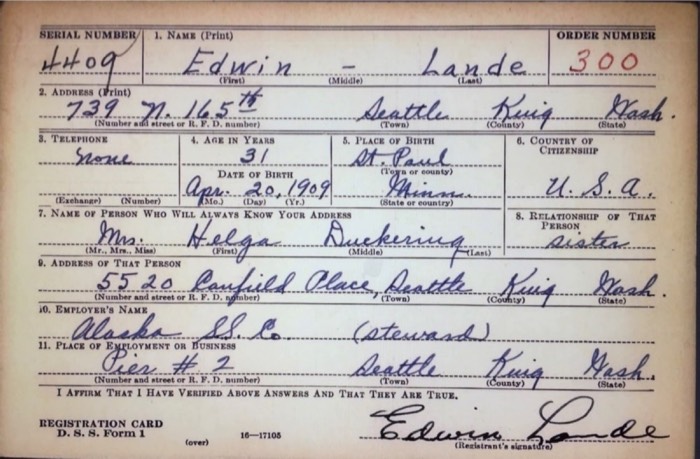 SERIAL NUMBER 1. NAME (Print) ORDER NUMBER
4409 Edwin - Lande 300
(First) (Middle) (Last)
2. ADDRESS (Print)
739 N. 165th Seattle King Wash.
(Number and street or R. F. D. number) (Town) (County) (State)
3. TELEPHONE 4. AGE IN YEARS 5. PLACE OF BIRTH 6. COUNTRY OF CITIZENSHIP
None 31 St. Paul
DATE OF BIRTH (Town or county)
Apr. 20, 1909 Minn. U. S. A.
(Exchange) (Number) (Mo.) (Day) (Yr.) (State or country)
7. NAME OF PERSON WHO WILL ALWAYS KNOW YOUR ADDRESS 8. RELATIONSHIP OF THAT PERSON
Mrs. Helga Duckering sister
(Mr., Mrs., Miss) (First) (Middle) (Last)
9. ADDRESS OF THAT PERSON
5520 Canfield Place, Seattle King Wash.
(Number and street or R. F. D. number) (Town) (County) (State)
10. EMPLOYER'S NAME
Alaska SS. Co. (steward)
11. PLACE OF EMPLOYMENT OR BUSINESS
Pier # 2 Seattle King Wash.
(Number and street or R. F. D. number) (Town) (County) (State)
I AFFIRM THAT I HAVE VERIFIED ABOVE ANSWERS AND THAT THEY ARE TRUE.
REGISTRATION CARD
D. S. S. Form 1 Edwin Lande
(over) 16—17105 (Registrant's signature)